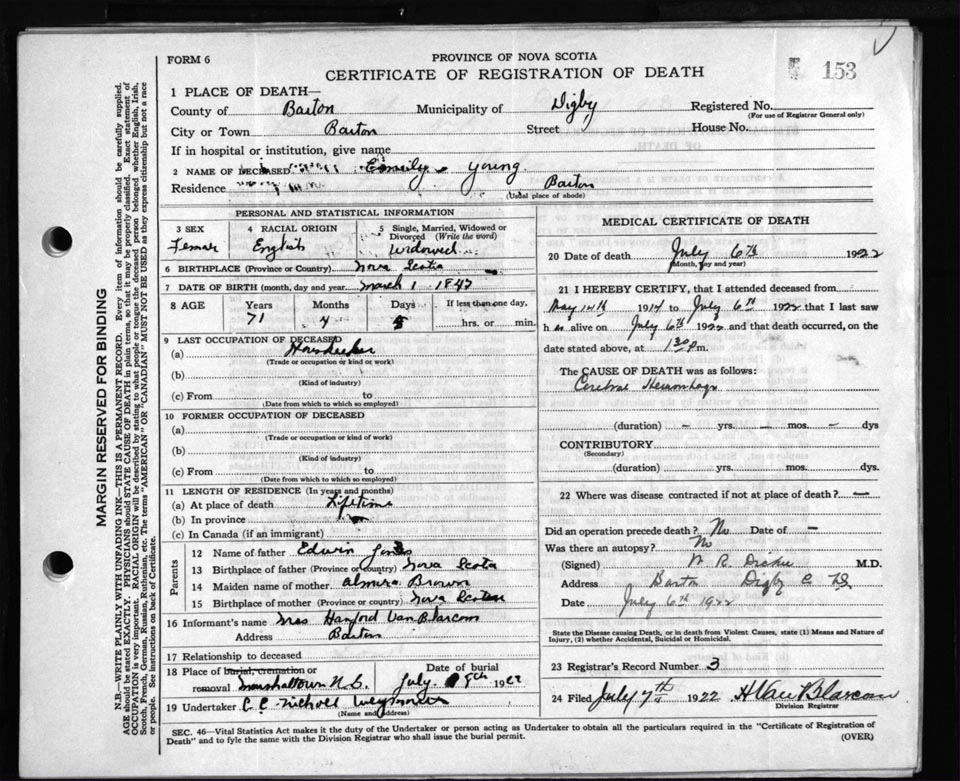 FORM 6
PROVINCE OF NOVA SCOTIA
CERTIFICATE OF REGISTRATION OF DEATH
153
1 PLACE OF DEATH—
County of Barton Municipality of Digby Registered No.
(For use of Registrar General only)
City or Town Barton Street House No.
If in hospital or institution, give name
2 NAME OF DECEASED Emily Young
Residence Barton
(Usual place of abode)
PERSONAL AND STATISTICAL INFORMATION
3 SEX 4 RACIAL ORIGIN 5 Single, Married, Widowed or Divorced (Write the word)
Female English Widowed
6 BIRTHPLACE (Province or Country) Nova Scotia
7 DATE OF BIRTH (month, day and year) March 1 1847
8 AGE Years Months Days If less than one day,
71 4 5 hrs. or min.
9 LAST OCCUPATION OF DECEASED
(a) Housekeeper
(Trade or occupation or kind or work)
(b)
(Kind of industry)
(c) From to
(Date from which to which so employed)
10 FORMER OCCUPATION OF DECEASED
(a)
(Trade or occupation or kind of work)
(b)
(Kind of industry)
(c) From to
(Date from which to which so employed)
11 LENGTH OF RESIDENCE (In years and months)
(a) At place of death Lifetime
(b) In province
(c) In Canada (if an immigrant)
Parents
12 Name of father Edwin Jones
13 Birthplace of father (Province or country) Nova Scotia
14 Maiden name of mother Almira Brown
15 Birthplace of mother (Province or country) Nova Scotia
16 Informant's name Mrs Hanford Van Blarcom
Address Barton
17 Relationship to deceased
18 Place of burial, cremation or removal Marshalltown N.S. Date of burial July 8th 1922
19 Undertaker C. C. Nichol Weymouth
(Name and address)
MEDICAL CERTIFICATE OF DEATH
20 Date of death July 6th 1922
(Month, day and year)
21 I HEREBY CERTIFY, that I attended deceased from
May 14th 1914 to July 6th 1922 that I last saw
h er alive on July 6th 1922 and that death occurred, on the
date stated above, at 1 30 p m.
The CAUSE OF DEATH was as follows:
Cerebral Hemorrhage
(duration) – yrs. – mos. – dys
CONTRIBUTORY
(Secondary)
(duration) yrs. mos. dys.
22 Where was disease contracted if not at place of death? —
Did an operation precede death? No Date of –
Was there an autopsy? No
(Signed) W R. Dickie M.D.
Address Barton Digby C NS
Date July 6th 1922
State the Disease causing Death, or in death from Violent Causes, state (1) Means and Nature of
Injury, (2) whether Accidental, Suicidal or Homicidal.
23 Registrar's Record Number 3
24 Filed July 7th 1922 H Van Blarcom
Division Registrar
SEC. 46—Vital Statistics Act makes it the duty of the Undertaker or person acting as Undertaker to obtain all the particulars required in the "Certificate of Registration of
Death" and to fyle the same with the Division Registrar who shall issue the burial permit.
(OVER)
MARGIN RESERVED FOR BINDING
N.B.—WRITE PLAINLY WITH UNFADING INK—THIS IS A PERMANENT RECORD. Every item of information should be carefully supplied.
AGE should be stated EXACTLY. PHYSICIANS should STATE CAUSE OF DEATH in plain terms, so that it may be properly classified. Exact statement of
OCCUPATION is very important. RACIAL ORIGIN will be described by stating to what people or tongue the deceased person belonged whether English, Irish,
Scotch, French, German, Russian, Ruthenian, etc. The terms "AMERICAN" or "CANADIAN" MUST NOT BE USED as they express citizenship but not a race
or people. See instructions on back of Certificate.